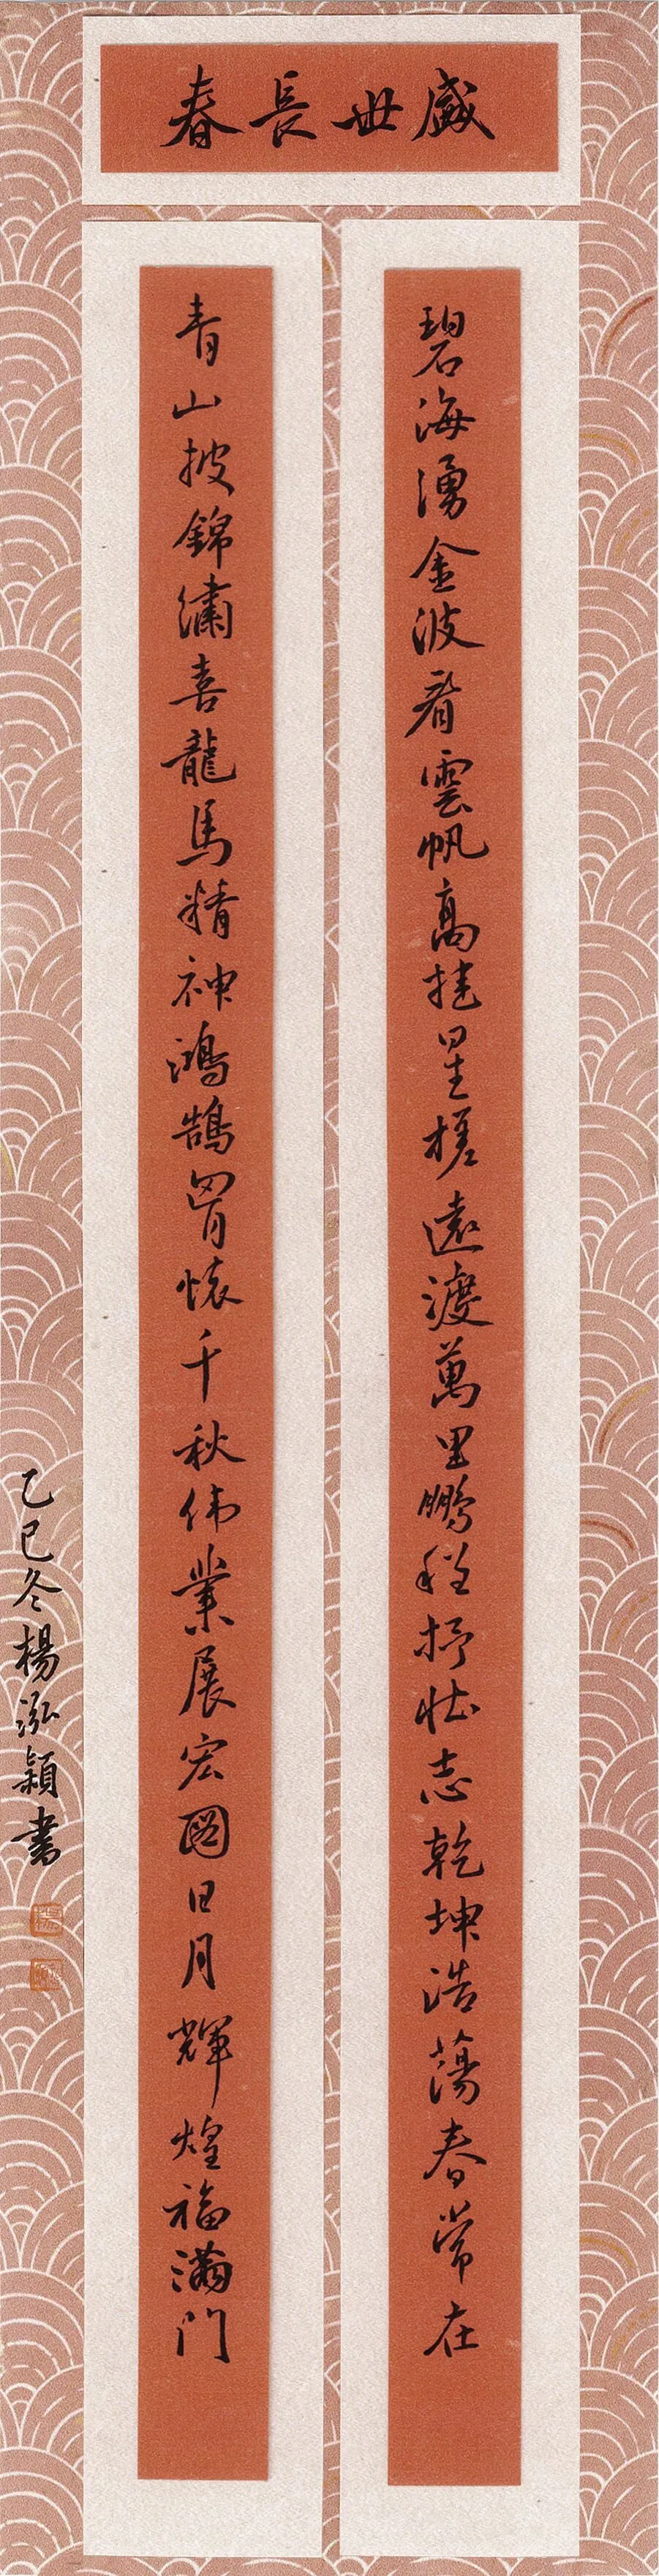 盛世長春
碧海湧金波看雲帆高挂星槎遠渡萬里鵬程抒壯志乾坤浩蕩春常在
青山披錦繡喜龍馬精神鴻鵠胷懷千秋伟業展宏圖日月輝煌福滿門
乙巳冬楊泓穎書
楊